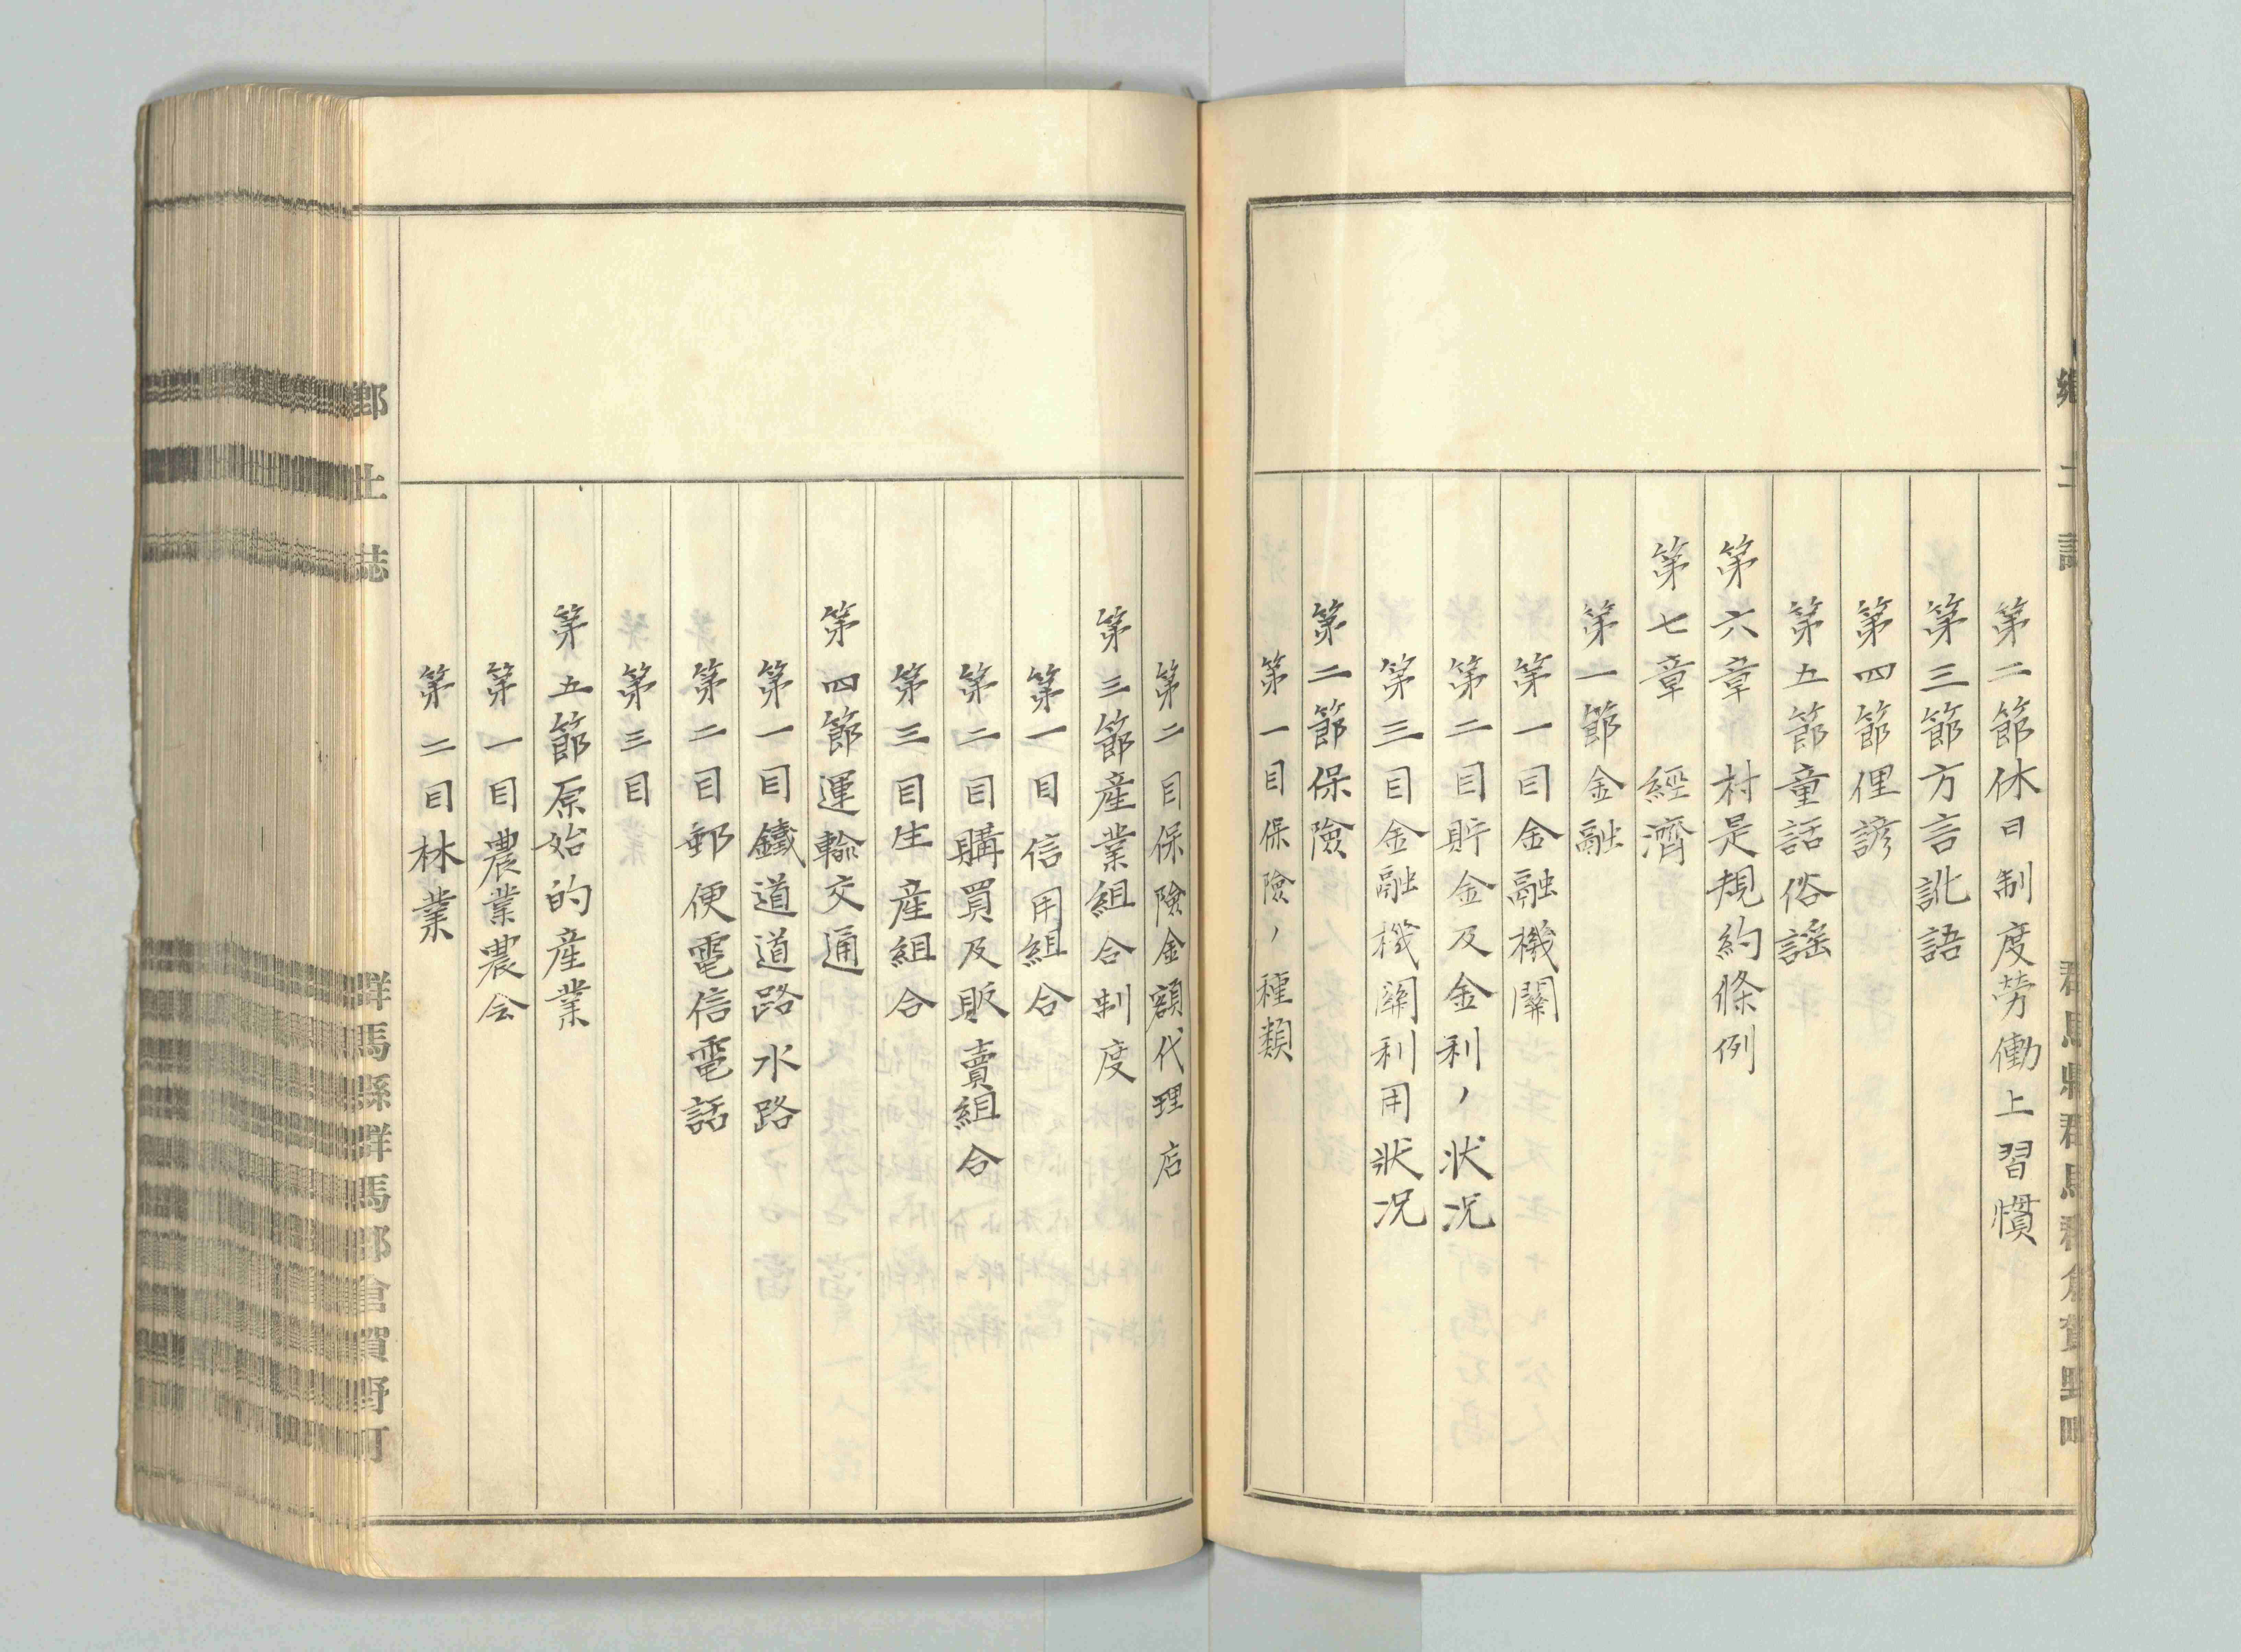 第二節休日制度労働上習慣
第三節方言訛語
第四節俚諺
第五節童話俗謡
第六章 村是規約條例
第七章 經濟
第一節金融
第一目金融機關
第二目貯金及金利ノ状况
第三目金融機関利用狀况
第二節保險
第一目保險ノ種類
第二目保險金額代理店
第三節産業組合制度
第一目信用組合
第二目購買及販賣組合
第三目生産組合
第四節運輸交通
第一目鐵道道路水路
第二目郵便電信電話
第三目
第五節原始的産業
第一目農業農会
第二目林業
郷土誌 群馬縣群馬郡倉賀野町